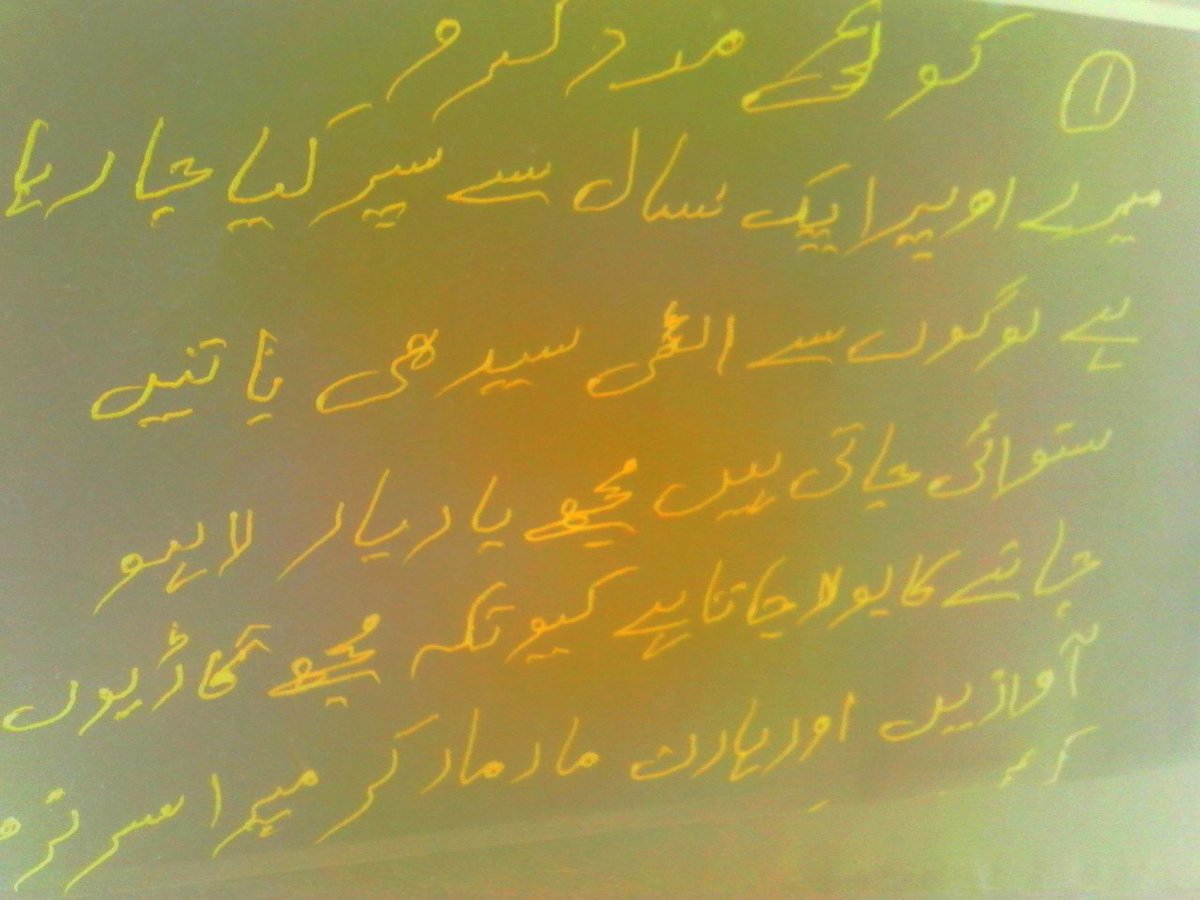 ① کو مجھے مدد کرو
میرے اوپر ایک سال سے سپر کیا جا رہا
ہے لوگوں سے الٹی سیدھی باتیں
سنوائی جاتی ہیں مجھے بار بار لاہو
جانے کا بولا جاتا ہے کیونکہ مجھے گاڑیوں
آوازیں اور ہارن مار مار کر میرا سر